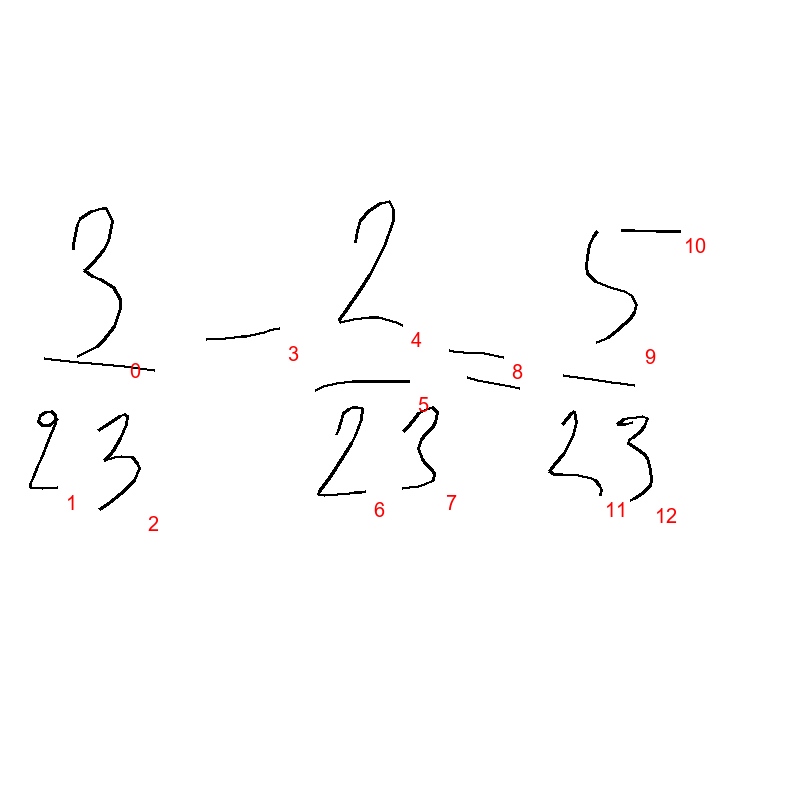 3/23 - 2/23 = 5/23
0 1 2 3 4 5 6 7 8 9 10 11 12